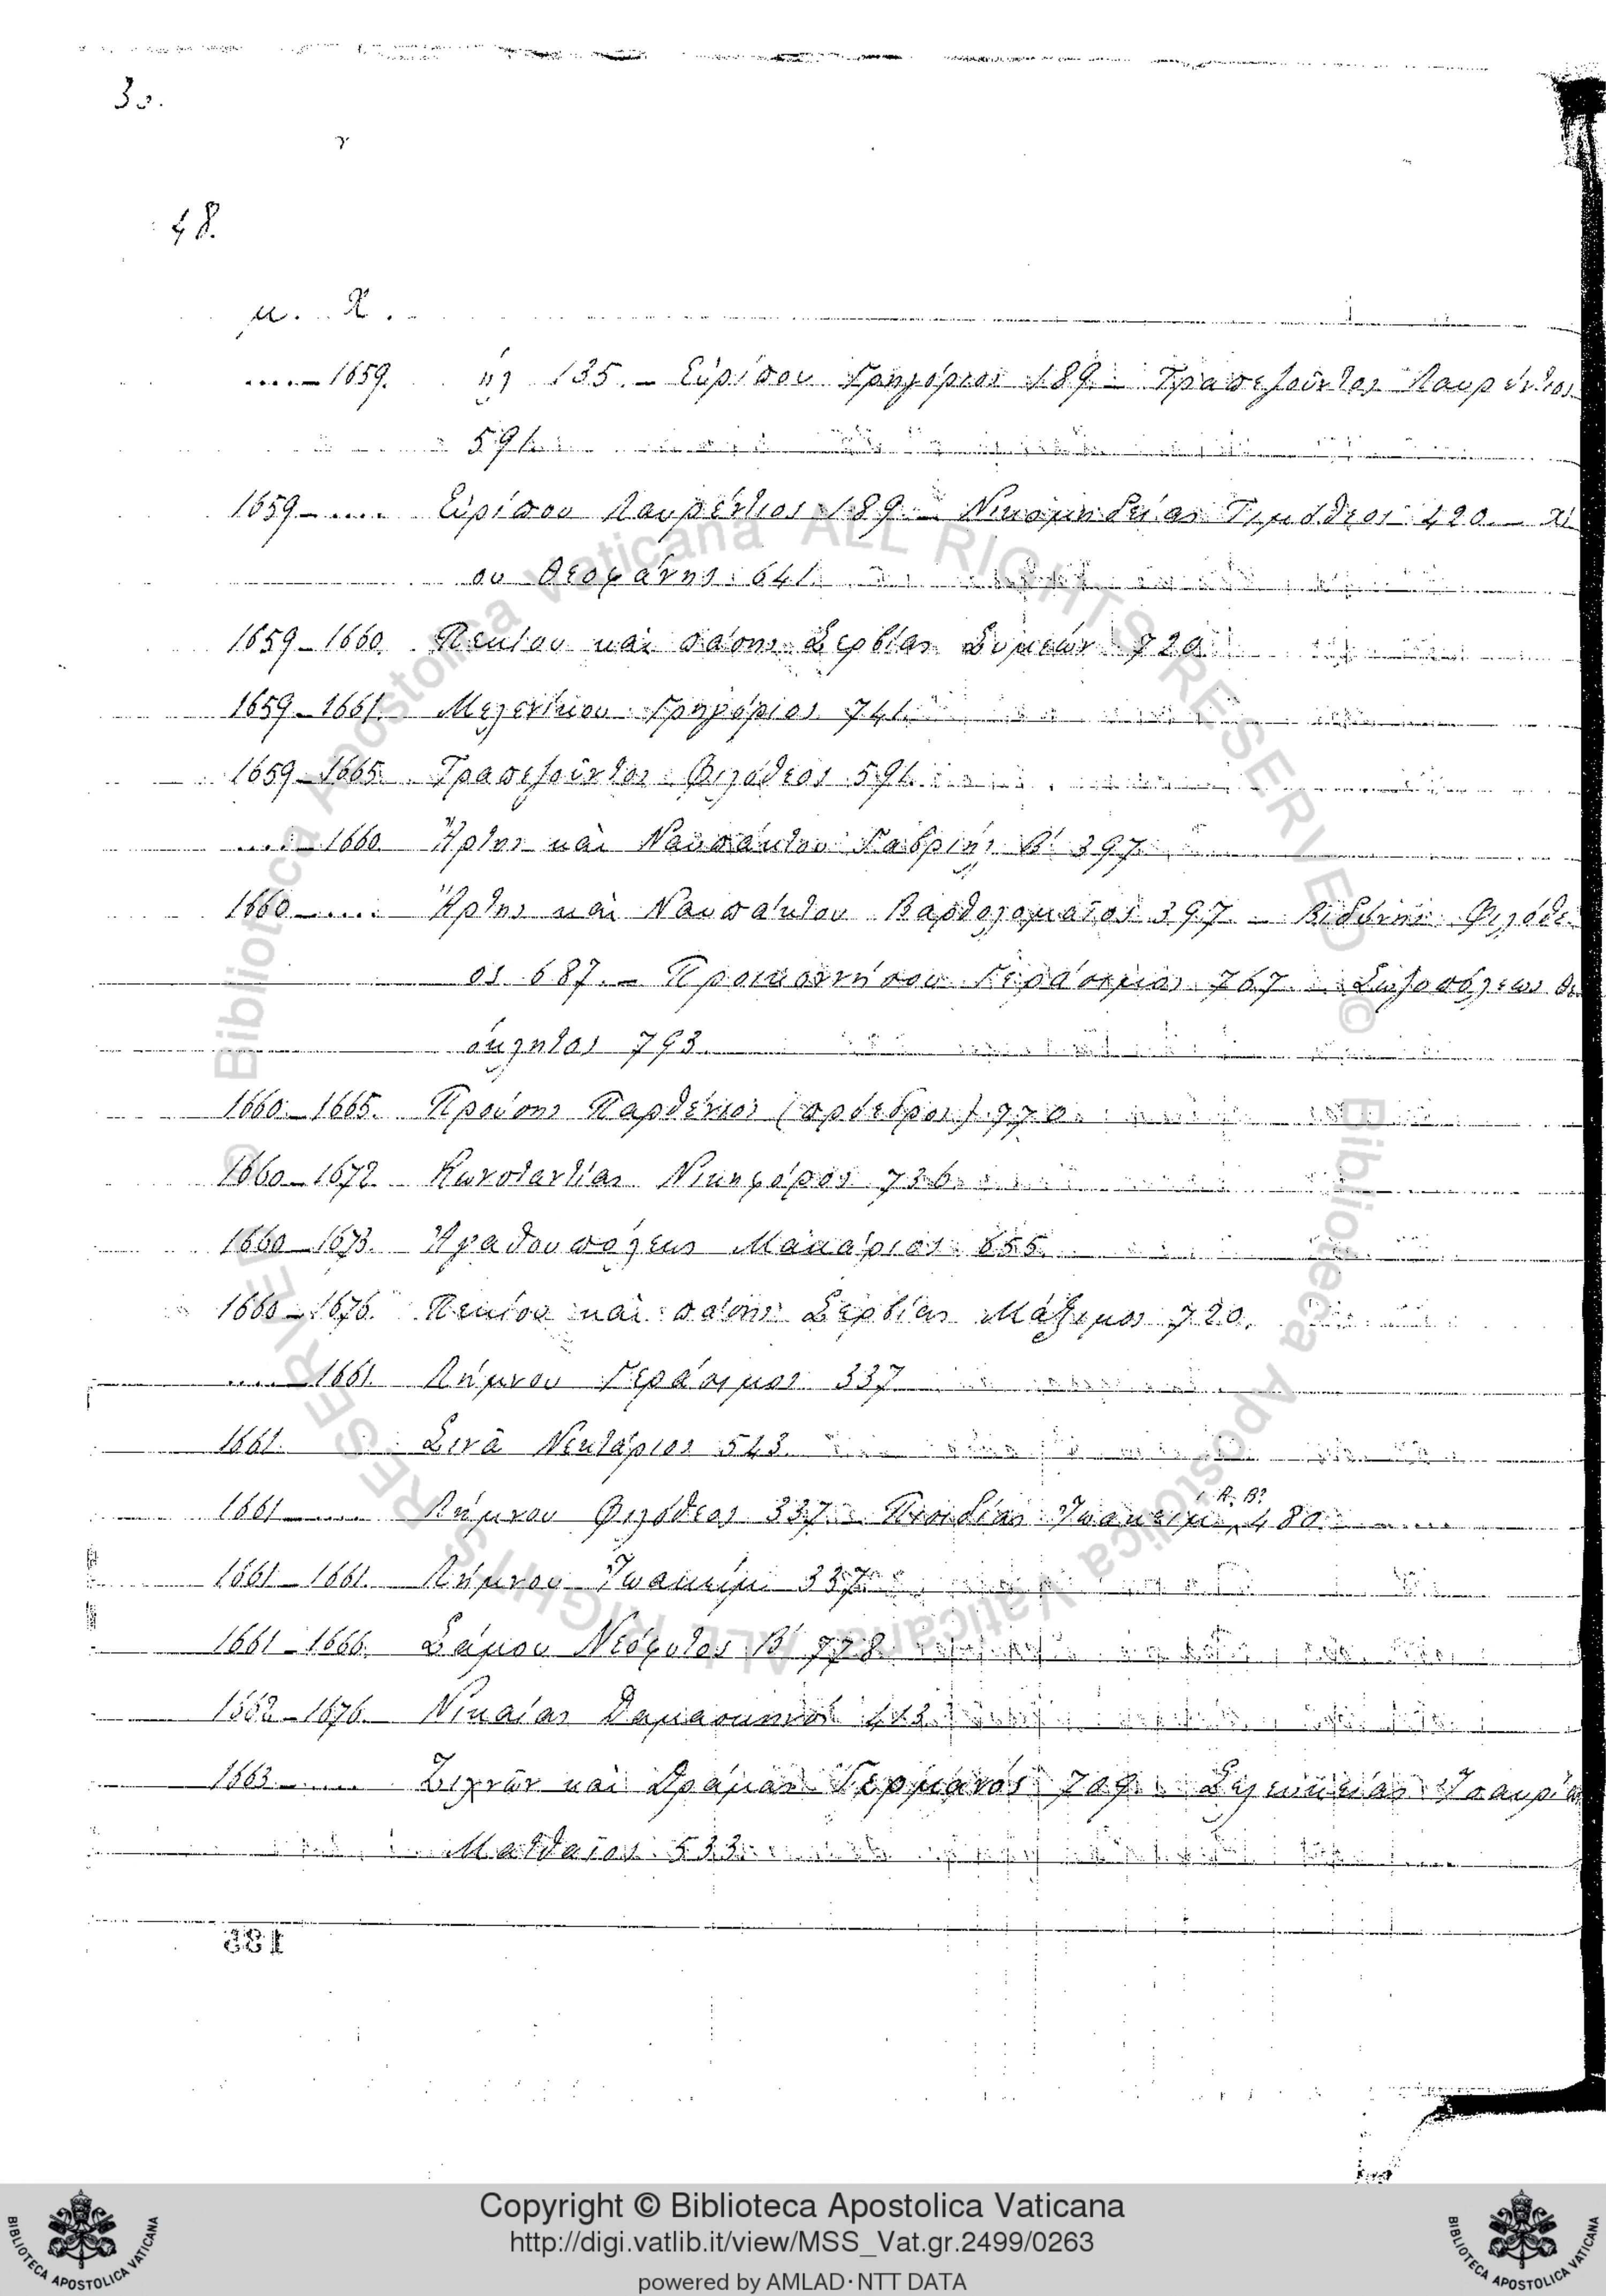 30.
48.
μ. Χ.
....– 1659. ήλ 135. – Εὐρίπου Γρηγόριος 189 – Τραπεζοῦντος Λαυρέντιος
591.
1659 – .... Εὐρίπου Λαυρέντιος 189 – Νικομηδείας Τιμόθεος 420. – Χί
ου Θεοφάνης 641.
1659 – 1660 Πεκίου καὶ πάσης Σερβίας Συμεών 720
1659 – 1661. Μελενίκου Γρηγόριος 741.
1659 – 1665. Τραπεζοῦντος Φιλόθεος 591.
.... 1660 Ἄρτης καὶ Ναυπάκτου Γαβριήλ Β' 397
1660 – .... Ἄρτης καὶ Ναυπάκτου Βαρθολομαῖος 397 – Βιδύνης Φιλόθε
ος 687. – Προικοννήσου Γεράσιμος 767 – Σωζοπόλεως Θε
όκλητος 793.
1660 – 1665. Προύσης Παρθένιος (πρόεδρος) 770
1660 – 1672. Κωνσταντίας Νικηφόρος 736
1660 – 1673. Ἀγαθουπόλεως Μακάριος 655
1660 – 1676. Πεκίου καὶ πάσης Σερβίας Μάξιμος 720.
.... – 1661. Λήμνου Γεράσιμος 337
1661. Σινᾶ Νεκτάριος 543.
1661 – .... Λήμνου Φιλόθεος 337 – Πισιδίας Ἰωακείμ, Α. Β? 480
1661 – 1661. Λήμνου Ἰωακείμ 337
1661 – 1666. Σάμου Νεόφυτος Β' 778
1662 – 1676. Νικαίας Δαμασκηνός 413
1663 – .... Ζιχνῶν καὶ Δράμας Γερμανός 709 – Σελευκείας Ἰσαυρία
Ματθαῖος 533
Copyright © Biblioteca Apostolica Vaticana
http://digi.vatlib.it/view/MSS_Vat.gr.2499/0263
powered by AMLAD·NTT DATA